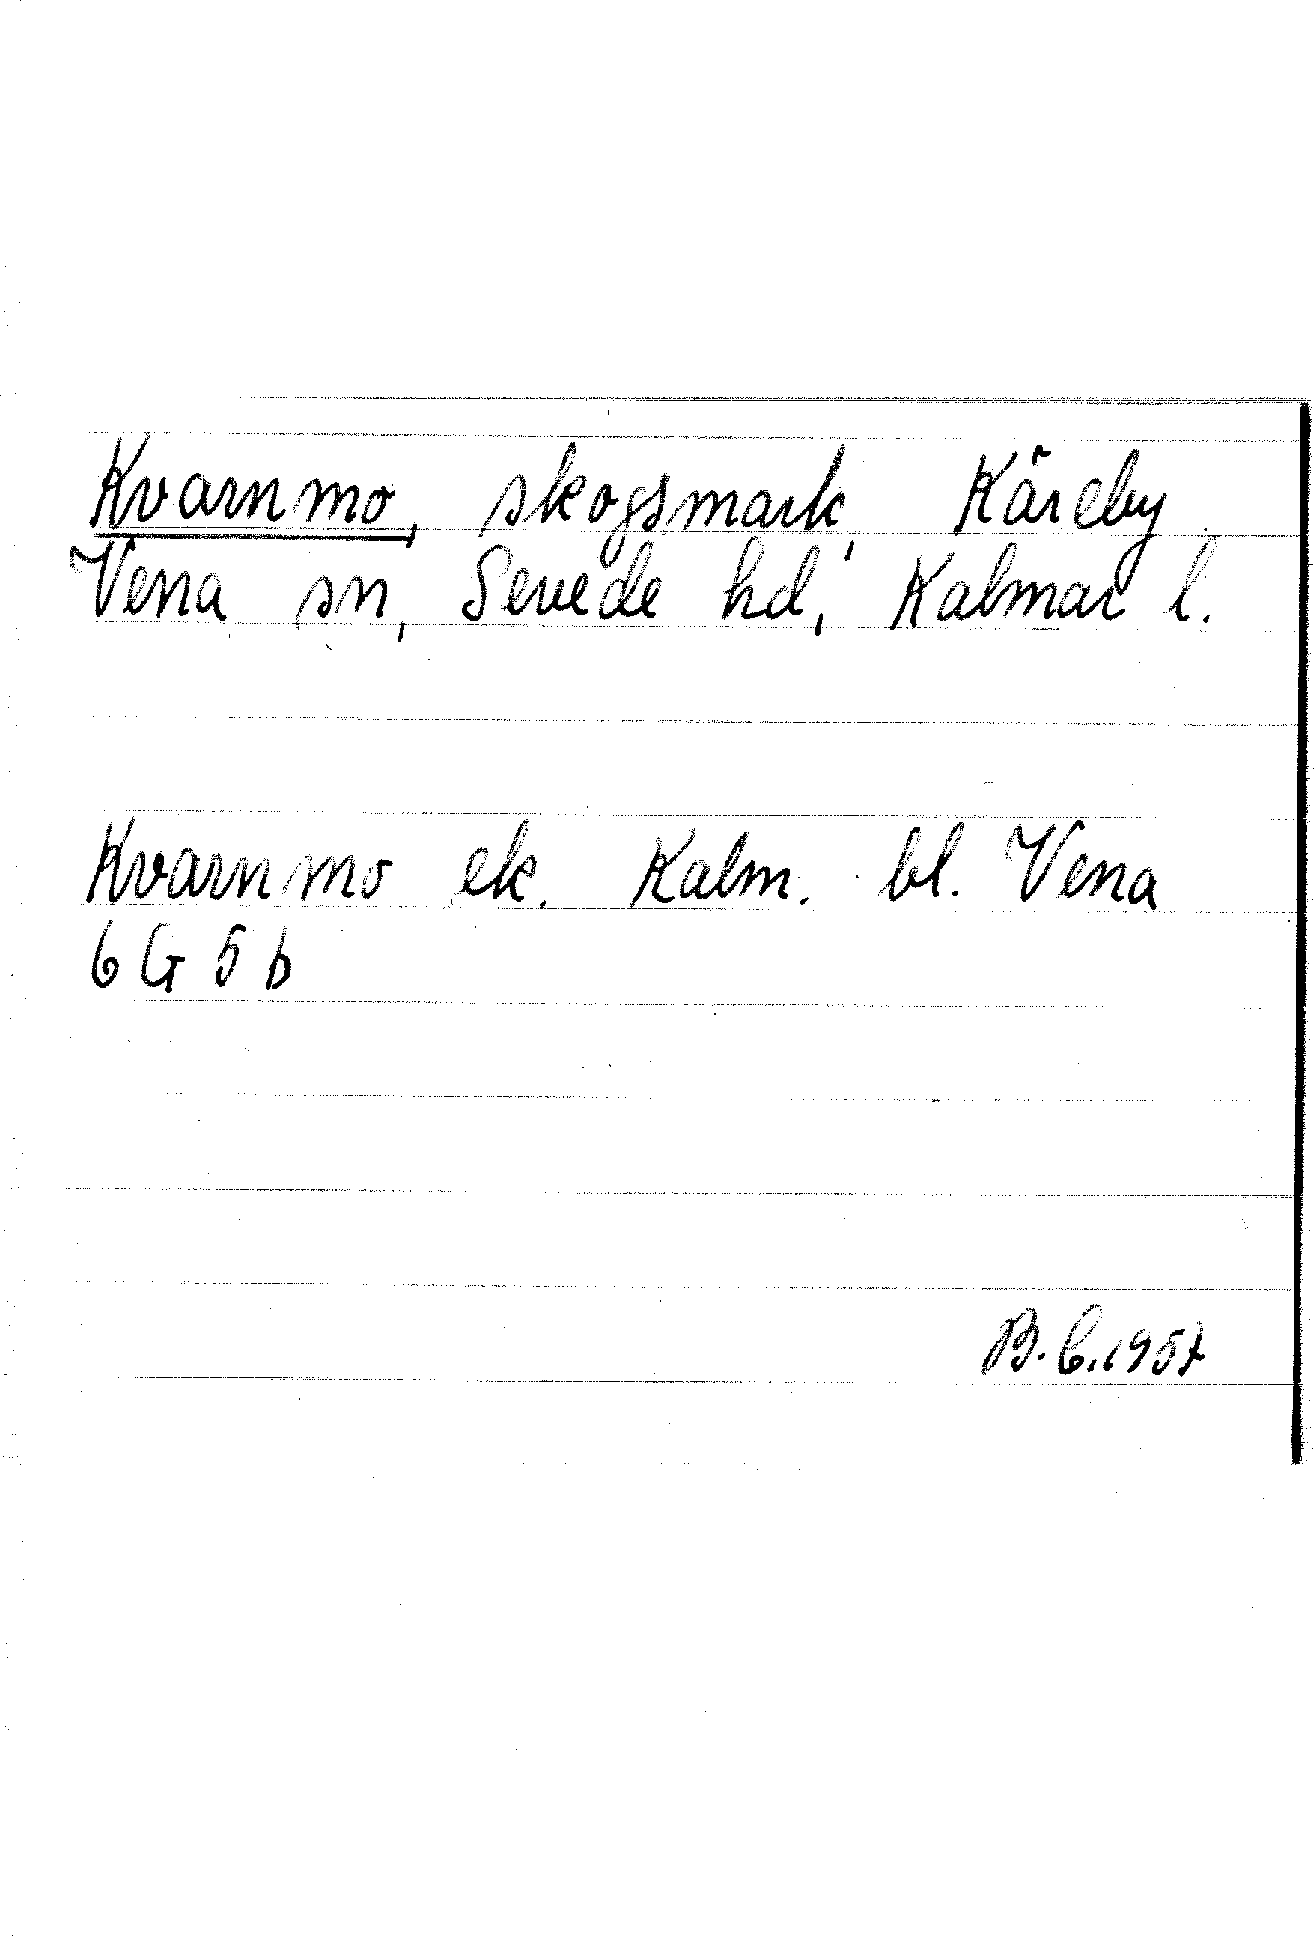 Kvarnmo, skogsmark, Käreby
Vena sn, Sevede hd, Kalmar l.
Kvarnmo ek. Kalm. bl. Vena
6 G 5 b
B. E. 1957